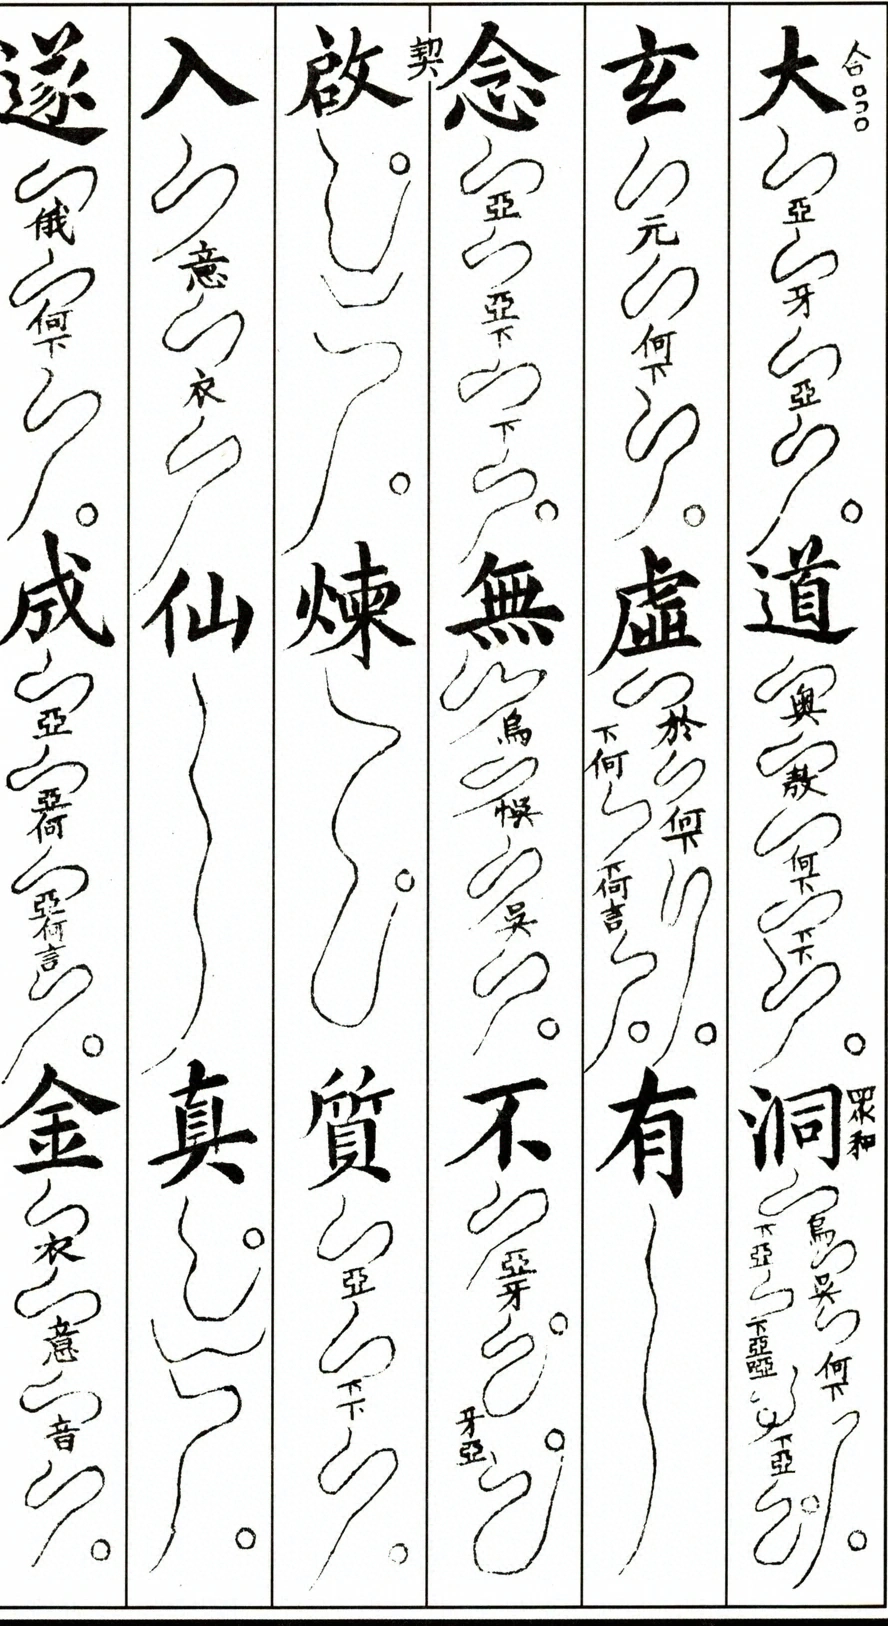 合 大 亞 牙 亞 道 奥 敖 何下 下下 眾和 洞 烏 吴 何下 下亞 下亞啞 下亞
玄 元 何下 虛 於 何下 下何 下何言 有
念 亞 亞下 下 無 烏 悞 吳 不 亞牙 牙亞
契 啟 煉 質 亞 下下
入 意 衣 仙 真
遂 俄 何下 成 亞 亞何 亞何言 金 衣 意 音